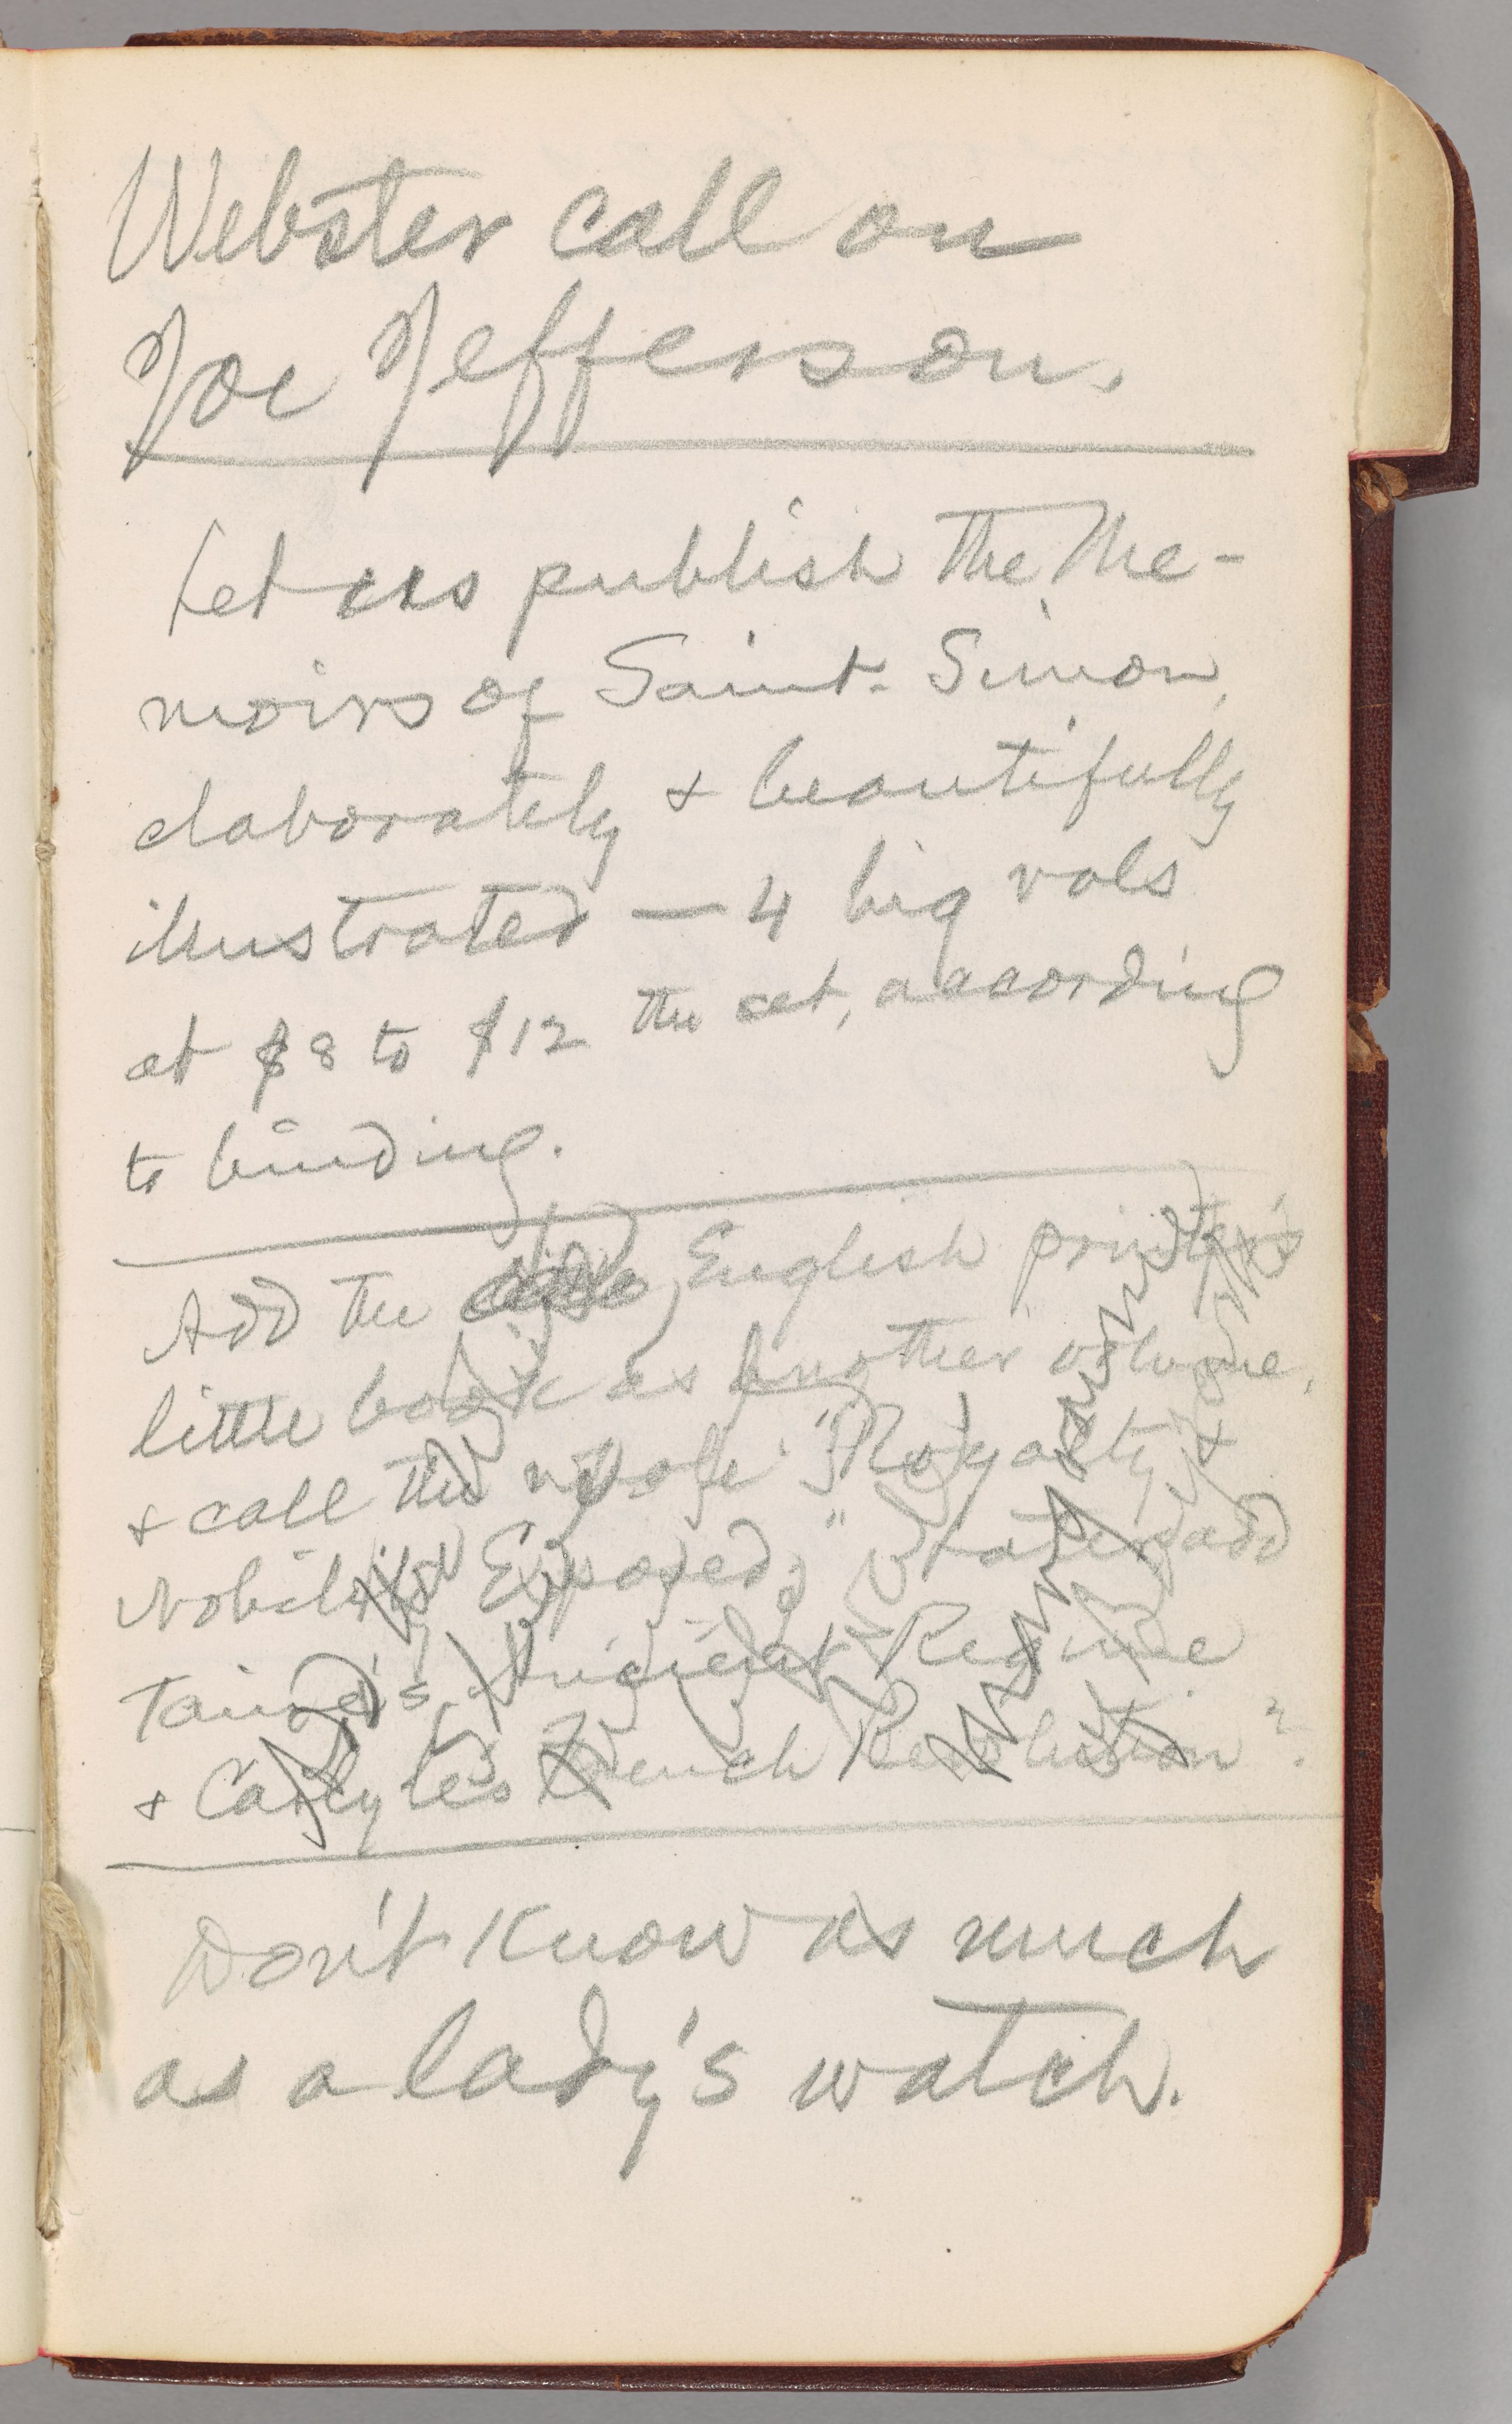 Webster call on
Joe Jefferson.
Let us publish the Me-
moirs of Saint-Simon,
elaborately & beautifully
illustrated — 4 big vols
at $8 to $12 the set, according
to binding.
Add the old English printer's
little book as another volume,
& call the whole "Royalty &
Nobility Exposed;" & later add
Taine's Ancient Regime
& Carlyle's French Revolution?
Don't know as much
as a lady's watch.